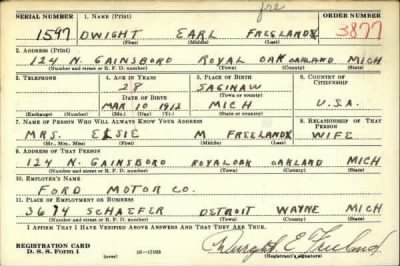 fre
SERIAL NUMBER 1. NAME (Print) ORDER NUMBER
1597 DWIGHT EARL FREELAND 3877
(First) (Middle) (Last)
2. ADDRESS (Print)
124 N. GAINSBORO ROYAL OAK OAKLAND MICH
(Number and street or R. F. D. number) (Town) (County) (State)
3. TELEPHONE 4. AGE IN YEARS 5. PLACE OF BIRTH 6. COUNTRY OF CITIZENSHIP
28 SAGINAW
DATE OF BIRTH (Town or county)
MAR 10 1912 MICH U.S.A.
(Exchange) (No.) (Mo.) (Day) (Yr.) (State or country)
7. NAME OF PERSON WHO WILL ALWAYS KNOW YOUR ADDRESS 8. RELATIONSHIP OF THAT PERSON
MRS. ELSIE M FREELAND WIFE
(Mr., Mrs., Miss) (First) (Middle) (Last)
9. ADDRESS OF THAT PERSON
124 N. GAINSBORO ROYAL OAK OAKLAND MICH
(Number and street or R. F. D. number) (Town) (County) (State)
10. EMPLOYER'S NAME
FORD MOTOR CO.
11. PLACE OF EMPLOYMENT OR BUSINESS
3674 SCHAEFER DETROIT WAYNE MICH
(Number and street or R. F. D. number) (Town) (County) (State)
I AFFIRM THAT I HAVE VERIFIED ABOVE ANSWERS AND THAT THEY ARE TRUE.
REGISTRATION CARD
D. S. S. Form 1 (over) 16—17105 Dwight E. Freeland
(Registrant's signature)